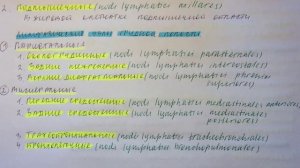 2. Подмышечные (nodi lymphatici axillares)
В жировой клетчатке подмышечной впадины
Лимфатические узлы грудной полости
① Париетальные
1. Окологрудинные (nodi lymphatici parasternales)
2. Задние межреберные (nodi lymphatici intercostales)
3. Верхние диафрагмальные (nodi lymphatici phrenici
superiores)
② Висцеральные
1. Передние средостенные (nodi lymphatici mediastinales anteriores)
2. Задние средостенные (nodi lymphatici mediastinales
posteriores)
3. Трахеобронхиальные (nodi lymphatici tracheobronchiales)
4. (nodi lymphatici bronchopulmonales)